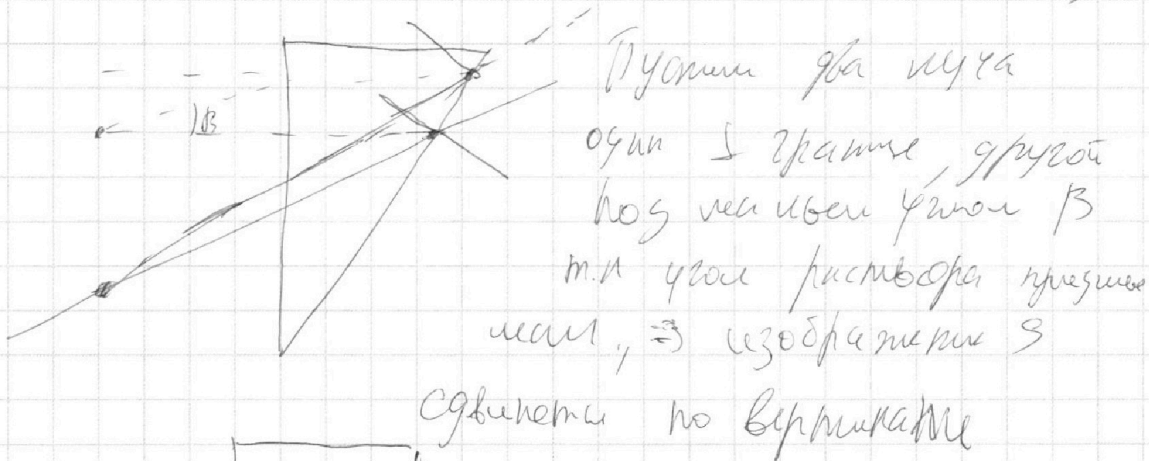 Пустим два луча
один ⊥ границе, другой
под малым углом β
т.к угол раствора призмы
мал, ⇒ изображение S
сдвинется по вертикали
β